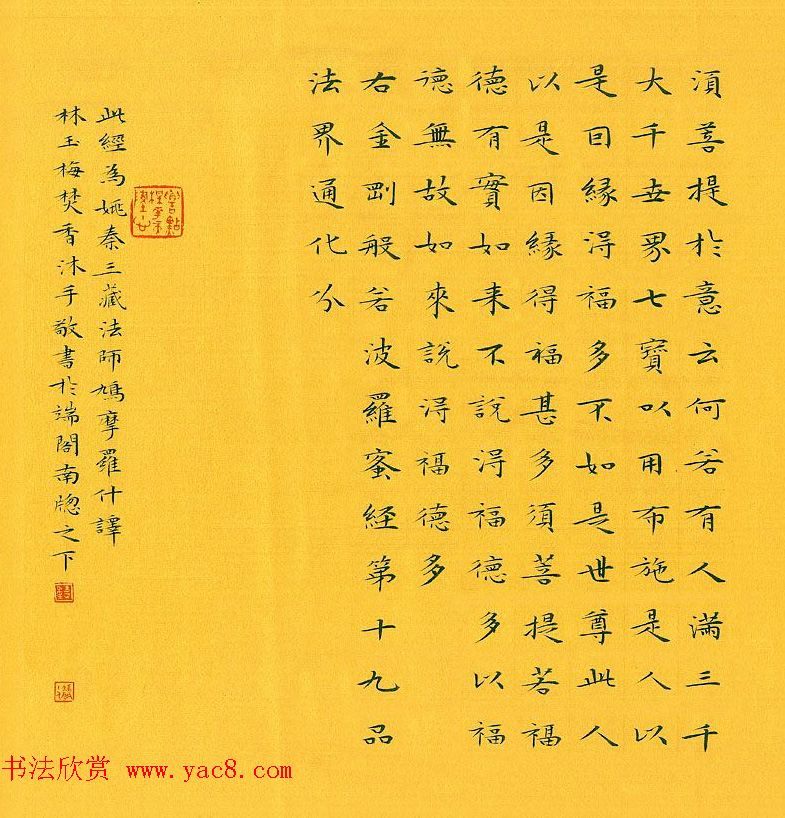 須菩提於意云何若有人滿三千
大千世界七寶以用布施是人以
是因緣得福多不如是世尊此人
以是因緣得福甚多須菩提若福
德有實如来不說得福德多以福
德無故如來說得福德多
右金剛般若波羅蜜經第十九品
法界通化分
此經為姚秦三藏法師鳩摩羅什譯
林玉梅焚香沐手敬書於端閣南牕之下
书法欣赏 www.yac8.com